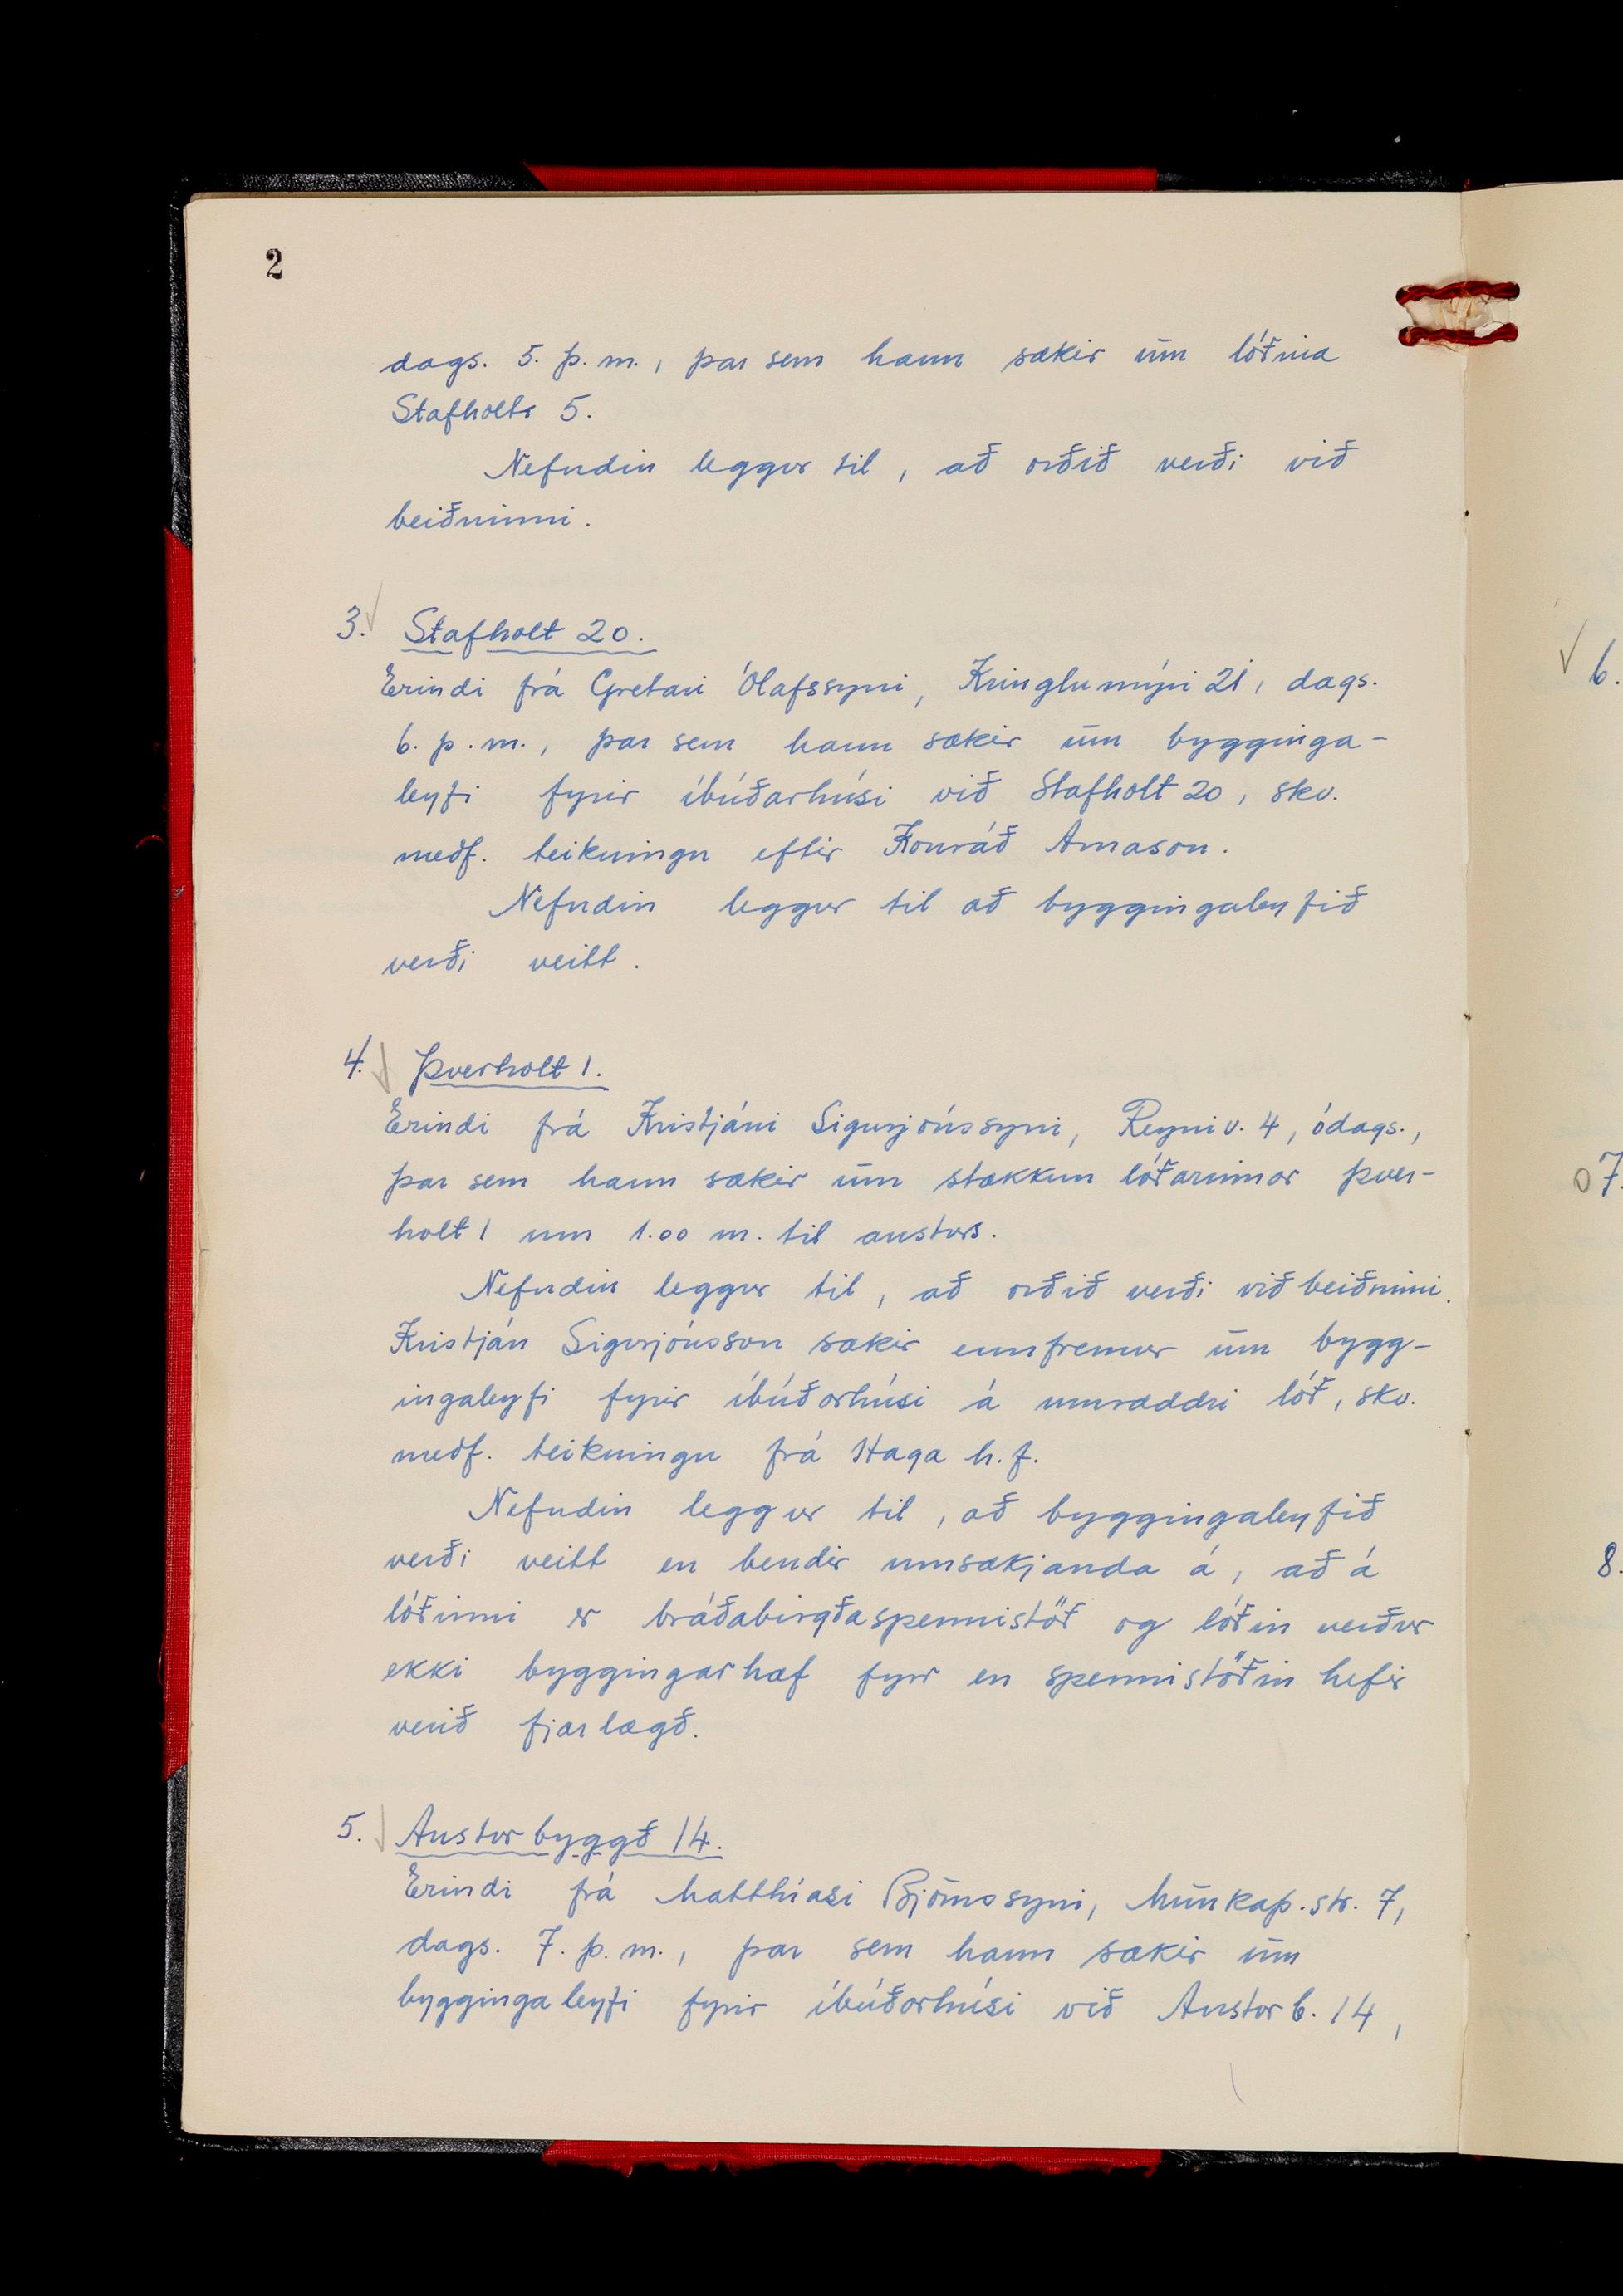 2
dags. 5. þ.m., þar sem hann sækir um lóðina
Stafholts 5.
Nefndin leggur til, að orðið verði við
beiðninni.
3. Stafholt 20.
Erindi frá Gretari Ólafssyni, Kringlumýri 21, dags.
6. þ.m., þar sem hann sækir um bygginga-
leyfi fyrir íbúðarhúsi við Stafholt 20, skv.
meðf. teikningu eftir Konráð Árnason.
Nefndin leggur til að byggingaleyfið
verði veitt.
4. Þverholt 1.
Erindi frá Kristjáni Sigurjónssyni, Reyniv. 4, ódags.,
þar sem hann sækir um stækkun lóðarinnar Þver-
holt 1 um 1.00 m. til austurs.
Nefndin leggur til, að orðið verði við beiðninni.
Kristján Sigurjónsson sækir ennfremur um bygg-
ingaleyfi fyrir íbúðarhúsi á umræddri lóð, skv.
meðf. teikningu frá Haga h.f.
Nefndin leggur til, að byggingaleyfið
verði veitt en bendir umsækjanda á, að á
lóðinni er bráðabirgðaspennistöð og lóðin verður
ekki byggingarhæf fyrr en spennistöðin hefir
verið fjarlægð.
5. Austurbyggð 14.
Erindi frá Matthíasi Björnssyni, Munkaþ.str. 7,
dags. 7. þ.m., þar sem hann sækir um
byggingaleyfi fyrir íbúðarhúsi við Austurb. 14,
6.
7.
8.